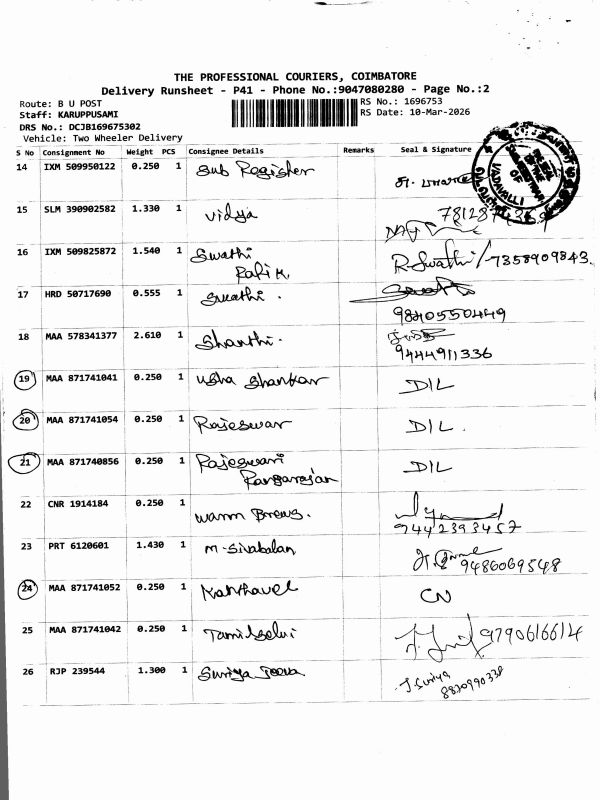 THE PROFESSIONAL COURIERS, COIMBATORE
Delivery Runsheet - P41 - Phone No.:9047080280 - Page No.:2
Route: B U POST
RS No.: 1696753
Staff: KARUPPUSAMI
RS Date: 10-Mar-2026
DRS No.: DCJB169675302
Vehicle: Two Wheeler Delivery
S No Consignment No Weight PCS Consignee Details Remarks Seal & Signature
14 IXM 509950122 0.250 1 Sub Register
VADAVALLI
15 SLM 390902582 1.330 1 Vidya
16 IXM 509825872 1.540 1 Swathi R.Swathi/7358909843.
17 HRD 50717690 0.555 1 Swathi.
9840550449
18 MAA 578341377 2.610 1 Shanthi.
9444911336
19 MAA 871741041 0.250 1 Usha Shankar DIL
20 MAA 871741054 0.250 1 Rajeswar DIL.
21 MAA 871740856 0.250 1 Rajeswari DIL
Rangarajan
22 CNR 1914184 0.250 1 Warm Brews.
9442393457
23 PRT 6120601 1.430 1 M-Sivabalan 9486069548
24 MAA 871741052 0.250 1 Kathavel CN
25 MAA 871741042 0.250 1 Tamilselvi 9790616614
26 RJP 239544 1.300 1 Suriya Jeeva J.Suriya